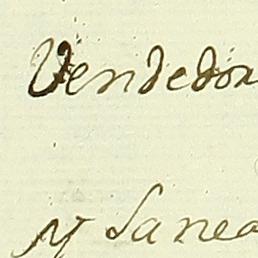 Vendedor
y Sanea